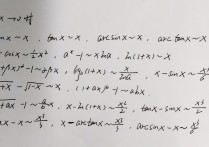 x→0 时
x ~ x , tanx ~ x , arcsinx ~ x , arctanx ~ x
-cosx ~ ½x² , aˣ-1 ~ xlna , ln(1+x) ~ x
+βx)ᵅ-1 ~ αβx , logₐ(1+x) ~ x/lna , x-sinx ~ x³/6
+x - √1-x ~ x , (1+ax)ᵇ-1 ~ abx
+ax -1 ~ a/b x , x-ln(1+x) ~ x²/2 , tanx-sinx ~ x³/2
x-x ~ x³/3 , x-arctanx ~ x³/3 , arcsinx-x ~ x³/6